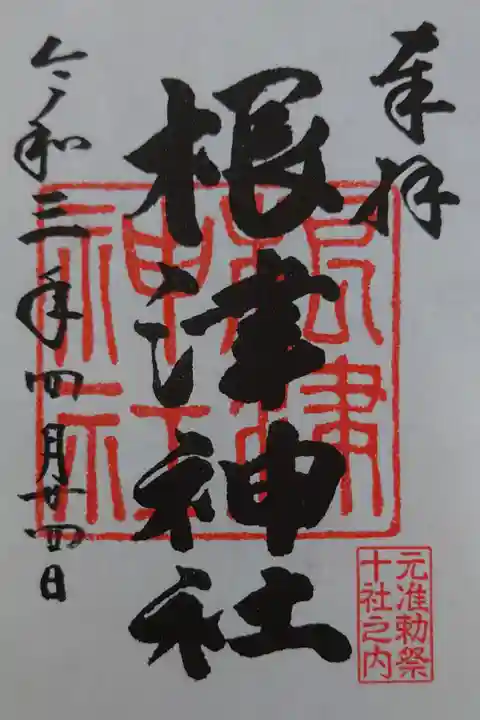 奉拝
根津神社
根津
神社
元准勅祭
十社之内
令和三年四月廿四日